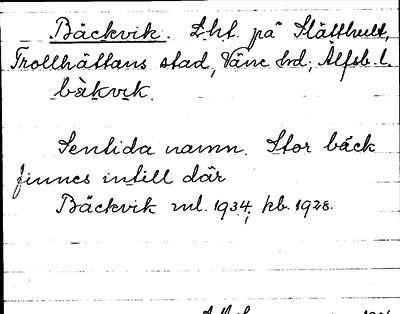 Bäckvik. Lht. på Slätthult,
Trollhättans stad, Väne hd; Älfsb. l.
bàkvik.
Sentida namn. Stor bäck
finnes intill där
Bäckvik ml. 1934; kb. 1928.